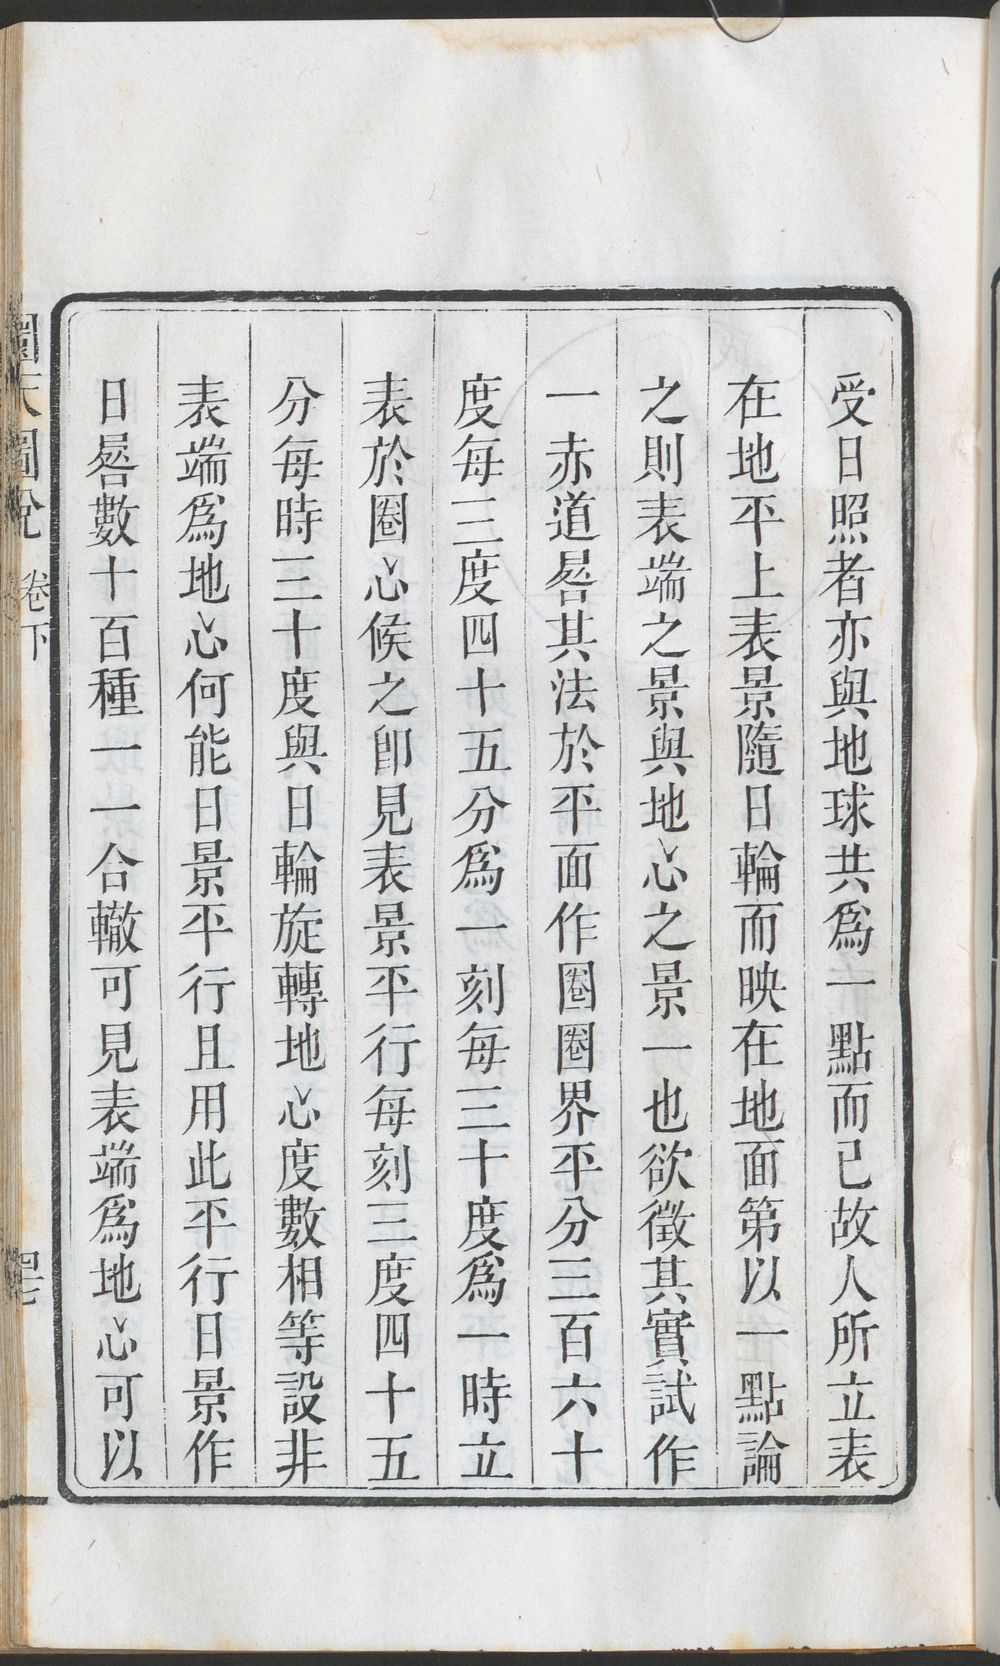 受日照者亦與地球共爲一點而已故人所立表
在地平上表景隨日輪而映在地面第以一點論
之則表端之景與地心之景一也欲徵其實試作
一赤道晷其法於平面作圈圈界平分三百六十
度每三度四十五分爲一刻每三十度爲一時立
表於圈心候之卽見表景平行每刻三度四十五
分每時三十度與日輪旋轉地心度數相等設非
表端爲地心何能日景平行且用此平行日景作
日晷數十百種一一合轍可見表端爲地心可以
圖說 卷下